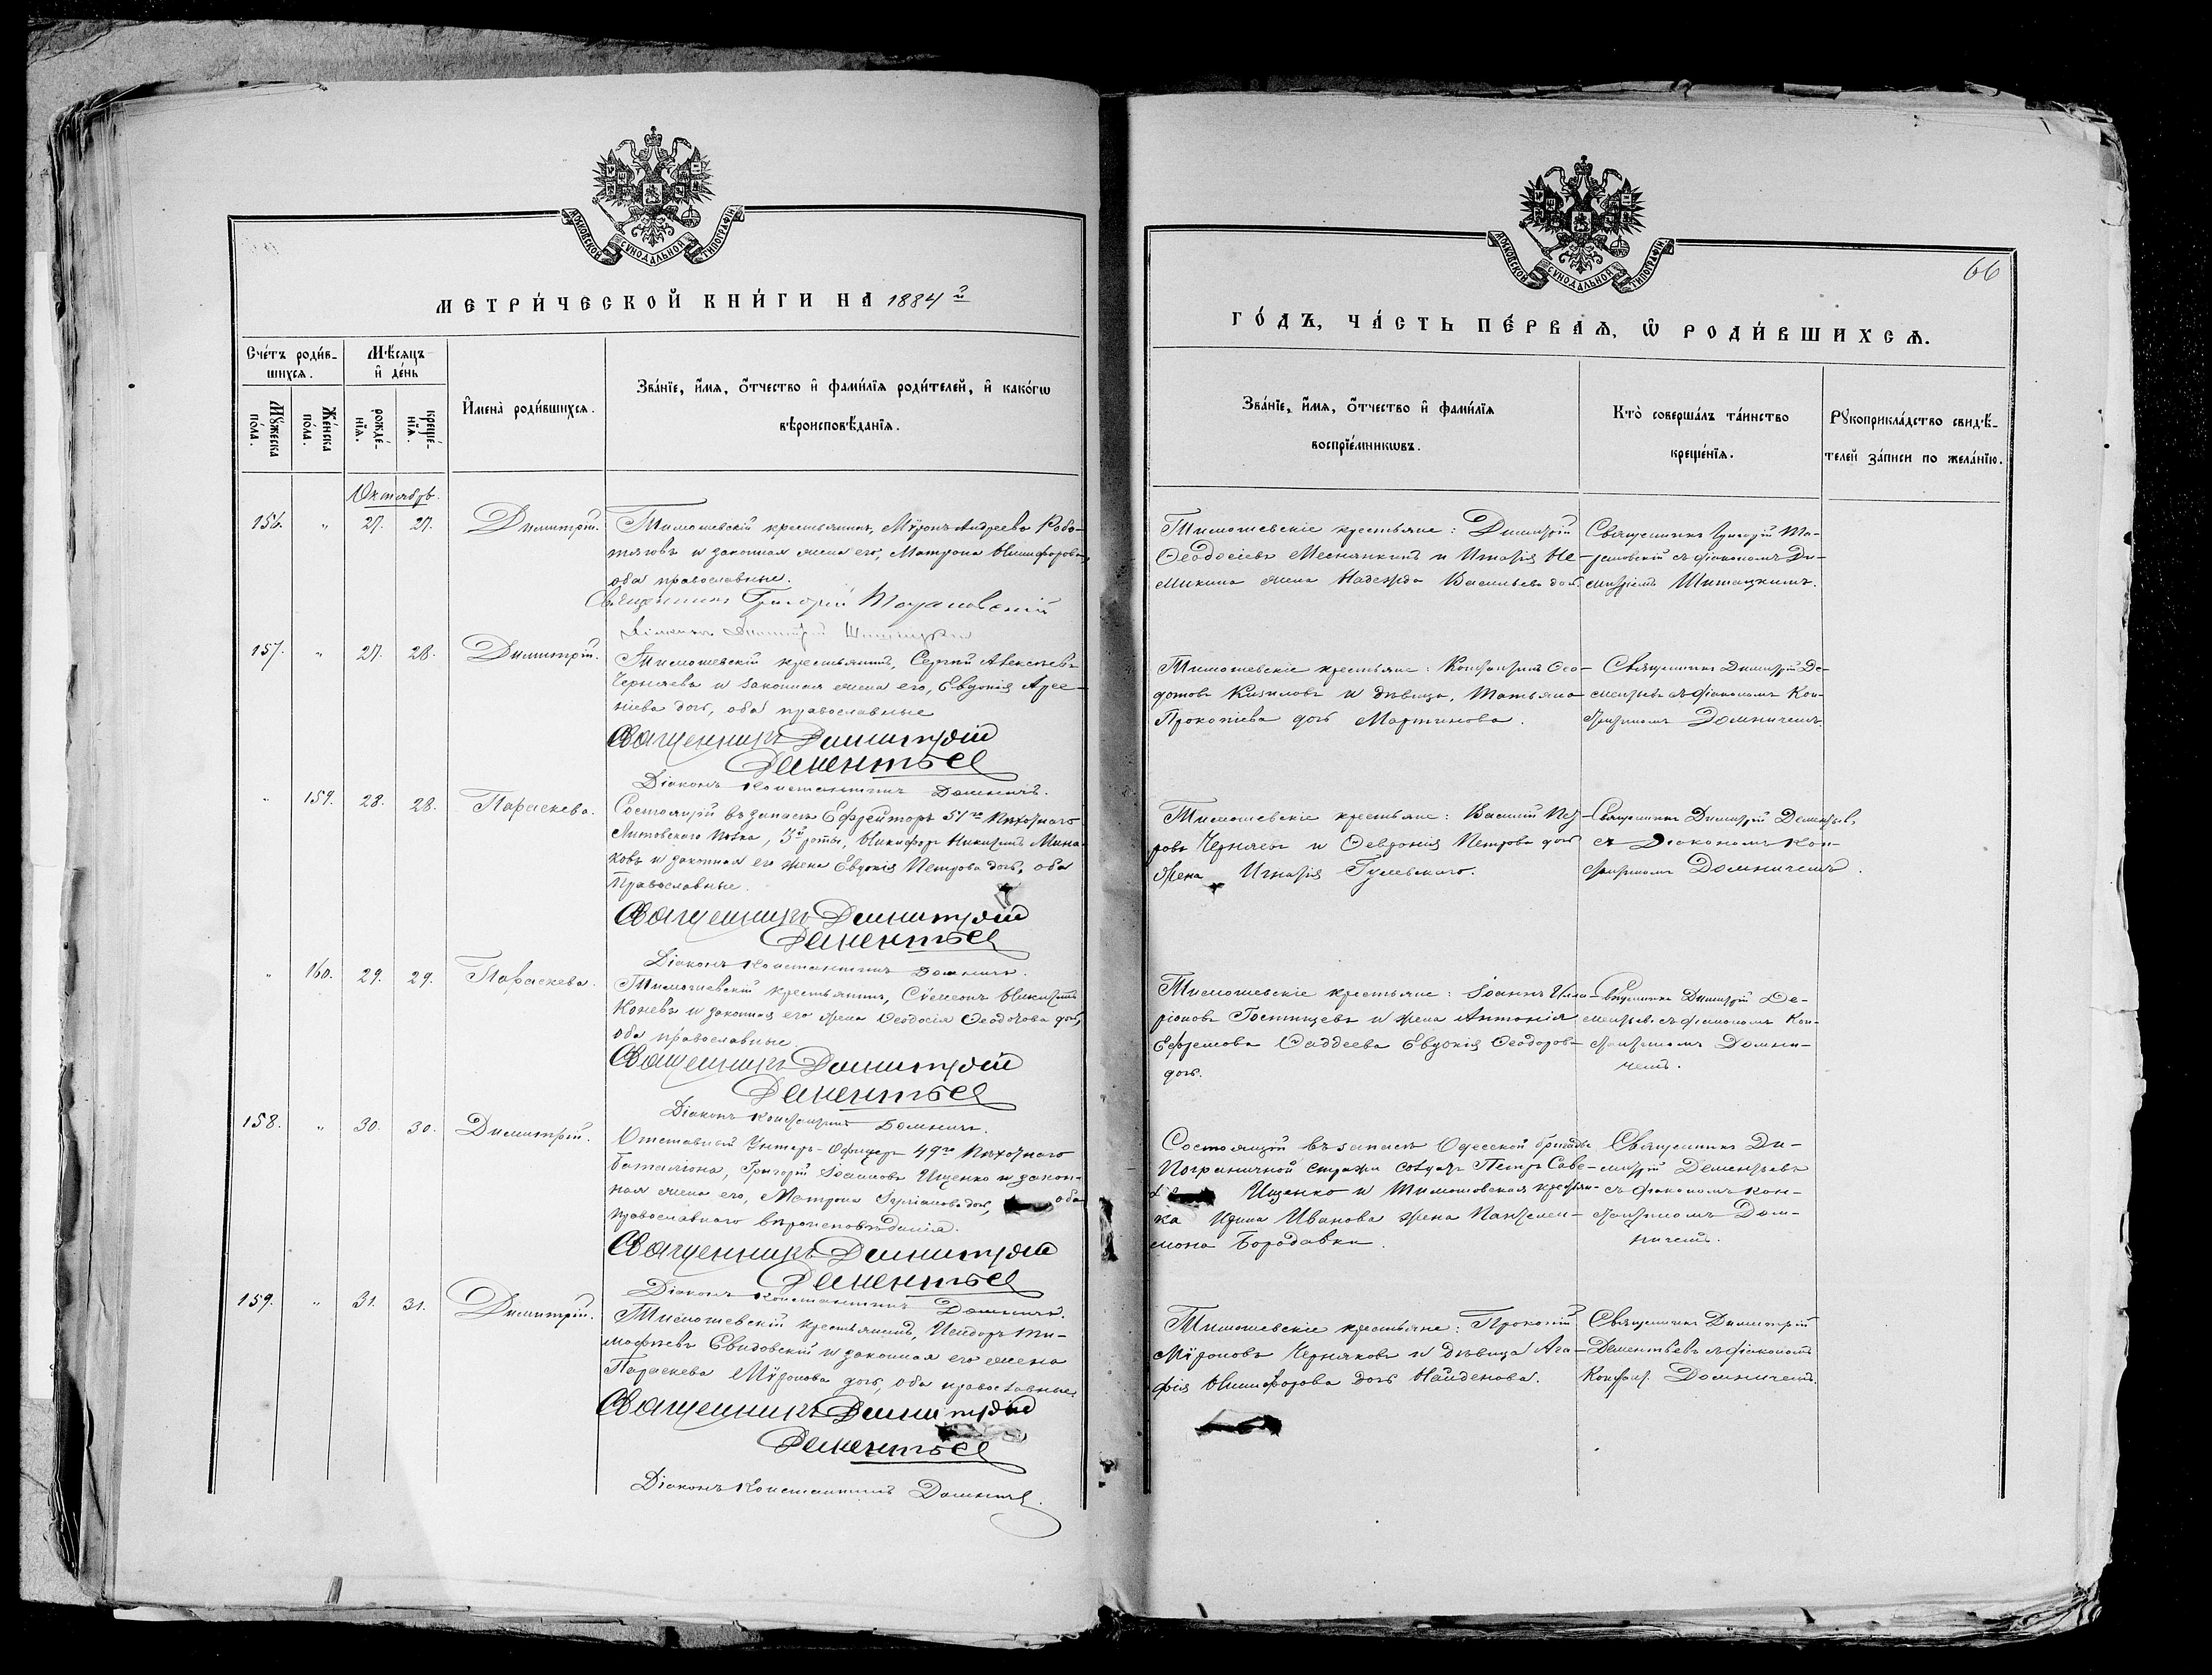 МОСКОВСКОЙ СѴНОДАЛЬНОЙ ТИПОГРАФІИ
МЕТРИ́ЧЕСКОЙ КНИ́ГИ НА 1884й
Сче́тъ роди́в-
шихся.
Мꙋ́жеска по́ла.
Же́нска по́ла.
Мѣ́сяцъ
и҆ де́нь
рожде́-
нїя.
креще́-
нїя.
И҆мена̀ роди́вшихся.
Зва́нїе, и҆́мя, ѻ҆́тчество и҆ фами́лїя роди́телей, и҆ како́гѡ
вѣроисповѣ́данїя.
Октябрь.
156. " 27. 27. Димитрій.
Тимошевскій крестьянинъ, Мѵронъ Андреевъ Робо-
тяговъ и законная жена его, Матрона Никифорова,
оба православные.
Священникъ Григорій
Діаконъ Димитрій
157. " 27. 28. Димитрій.
Тимошевскій крестьянинъ, Сергій Алексѣевъ
Черняевъ и законная жена его, Евдокія Арсе-
ніева дочь, оба православные
Священникъ Димитрій
Дементьев
Діаконъ Константинъ Домничъ.
" 159. 28. 28. Параскева.
Состоящій въ запасѣ Ефрейторъ 51го Пѣхотнаго
Литовскаго Полка, 3й роты, Никифоръ Никитинъ Мина-
ковъ и законная его жена Евдокія Петрова дочь, оба
Православные.
Священникъ Димитрій
Дементьев
Діаконъ Константинъ Домничъ.
" 160. 29. 29. Параскева.
Тимошевскій крестьянинъ, Сѵмеонъ Никитинъ
Коневъ и законная его жена Ѳеодосія Ѳеодотова дочь,
оба православные.
Священникъ Димитрій
Дементьев
Діаконъ Константинъ Домничъ.
158. " 30. 30. Димитрій.
Отставной Унтеръ-Офицеръ 49го Пѣхотнаго
Баталіона, Григорій Іоанновъ Ищенко и закон-
ная жена его, Матрона дочь, оба
православнаго вѣроисповѣданія.
Священникъ Димитрій
Дементьев
Діаконъ Константинъ Домничъ.
159. " 31. 31. Димитрій.
Тимошевскій крестьянинъ, Исидоръ Ти-
моѳѣевъ Свидовскій и законная его жена
Параскева Мѵронова дочь, оба православные.
Священникъ Димитрій
Дементьев
Діаконъ Константинъ Домничъ.
МОСКОВСКОЙ СѴНОДАЛЬНОЙ ТИПОГРАФІИ
66
ГО́ДЪ, ЧА́СТЬ ПЕ́РВАЯ, Ѽ РОДИ́ВШИХСЯ.
Зва́нїе, и҆́мя, ѻ҆́тчество и҆ фами́лїя
воспрїе́мникѡвъ.
Кто̀ соверша́лъ та́инство
креще́нїя.
Рꙋкоприкла́дство свидѣ́-
телей за́писи по жела́нїю.
Тимошевскіе крестьяне: Димитрій
Ѳеодосіевъ и Игнатія Не-
микина жена Надежда Васильева дочь.
Священникъ Григорій
съ діакономъ Ди-
митріемъ
Тимошевскіе крестьяне: Константинъ Ѳео-
дотовъ Кизиловъ и дѣвица, Татьяна
Прокопіева дочь Мартинова.
Священникъ Димитрій Де-
ментьевъ съ діакономъ Кон-
стантиномъ Домничемъ
Тимошевскіе крестьяне: Василій Пет-
ровъ Черняевъ и Ѳевронія Петрова дочь
жена Игнатія Гулевского.
Священникъ Димитрій Дементьевъ,
съ Діакономъ Кон-
стантиномъ Домничемъ.
Тимошевскіе крестьяне: Іоаннъ Ила-
ріоновъ Гостищевъ и жена Антонія
Ефремова Ѳаддеева Евдокія Ѳеодоров-
дочь.
Священникъ Димитрій Де-
ментьевъ съ діакономъ Кон-
стантиномъ Домни-
чемъ.
Состоящій въ запасѣ Одесской бригады
Пограничной стражи солдатъ Петръ Саве-
Ищенко и Тимошевская крестьян-
ка Ирина Иванова жена Пантелеи-
мона Бородавки.
Священникъ Ди-
митрій Дементьевъ
съ діакономъ Кон-
стантиномъ Дом-
ничемъ.
Тимошевскіе крестьяне: Прокопій
Мѵроновъ Черняковъ и дѣвица Ага-
фія Никифорова дочь Найденова.
Священникъ Димитрій
Дементьевъ съ діакономъ
Констант. Домничемъ.